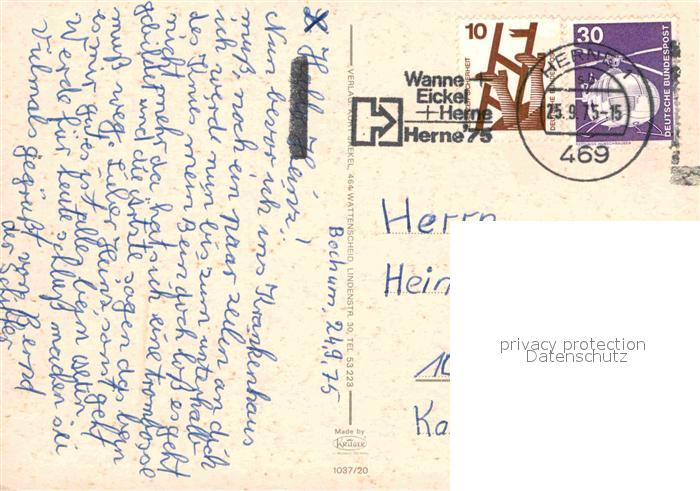 Heinz!
Nun bevor ich ins Krankenhaus
muß noch ein paar zeilen an dich
ich werd nun bis zum unterhalb
des Knies mein Bein doch loß es geht
nicht mehr da hat sich eine trombosse
gebildet und die Ärtste sagen das beyn
muß weg. Lieber Heinz sonst geht
es mir gut es ist alles beym alten
Werde für heute schluß machen sei
Vielmals gegrüßt von Bernd
der Schiffer
Bochum, 24,9,75
VERLAG 464 WATTENSCHEID, LINDENSTR. 30, TEL. 53 223
Made by
KRÜGER
1037/20
10
30
DEUTSCHE BUNDESPOST
Wanne-
Eickel
+Herne
Herne '75
HERNE 1
25.9.75-15
469
Herrn
Hein
10
Ka
privacy protection
Datenschutz